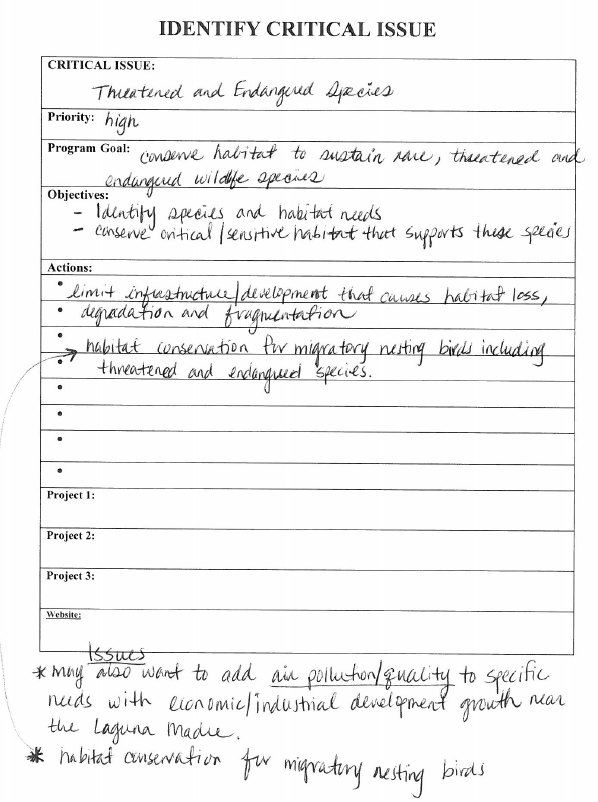 IDENTIFY CRITICAL ISSUE
CRITICAL ISSUE:
Threatened and Endangered Species
Priority: high
Program Goal: conserve habitat to sustain rare, threatened and
endangered wildlife species
Objectives:
- Identify species and habitat needs
- conserve critical/sensitive habitat that supports these species
Actions:
• limit infrastructure/development that causes habitat loss,
• degradation and fragmentation
•
habitat conservation for migratory nesting birds including
• threatened and endangered species.
•
•
•
•
Project 1:
Project 2:
Project 3:
Website:
Issues
* May also want to add air pollution/quality to specific
needs with economic/industrial development growth near
the Laguna Madre.
* habitat conservation for migratory nesting birds